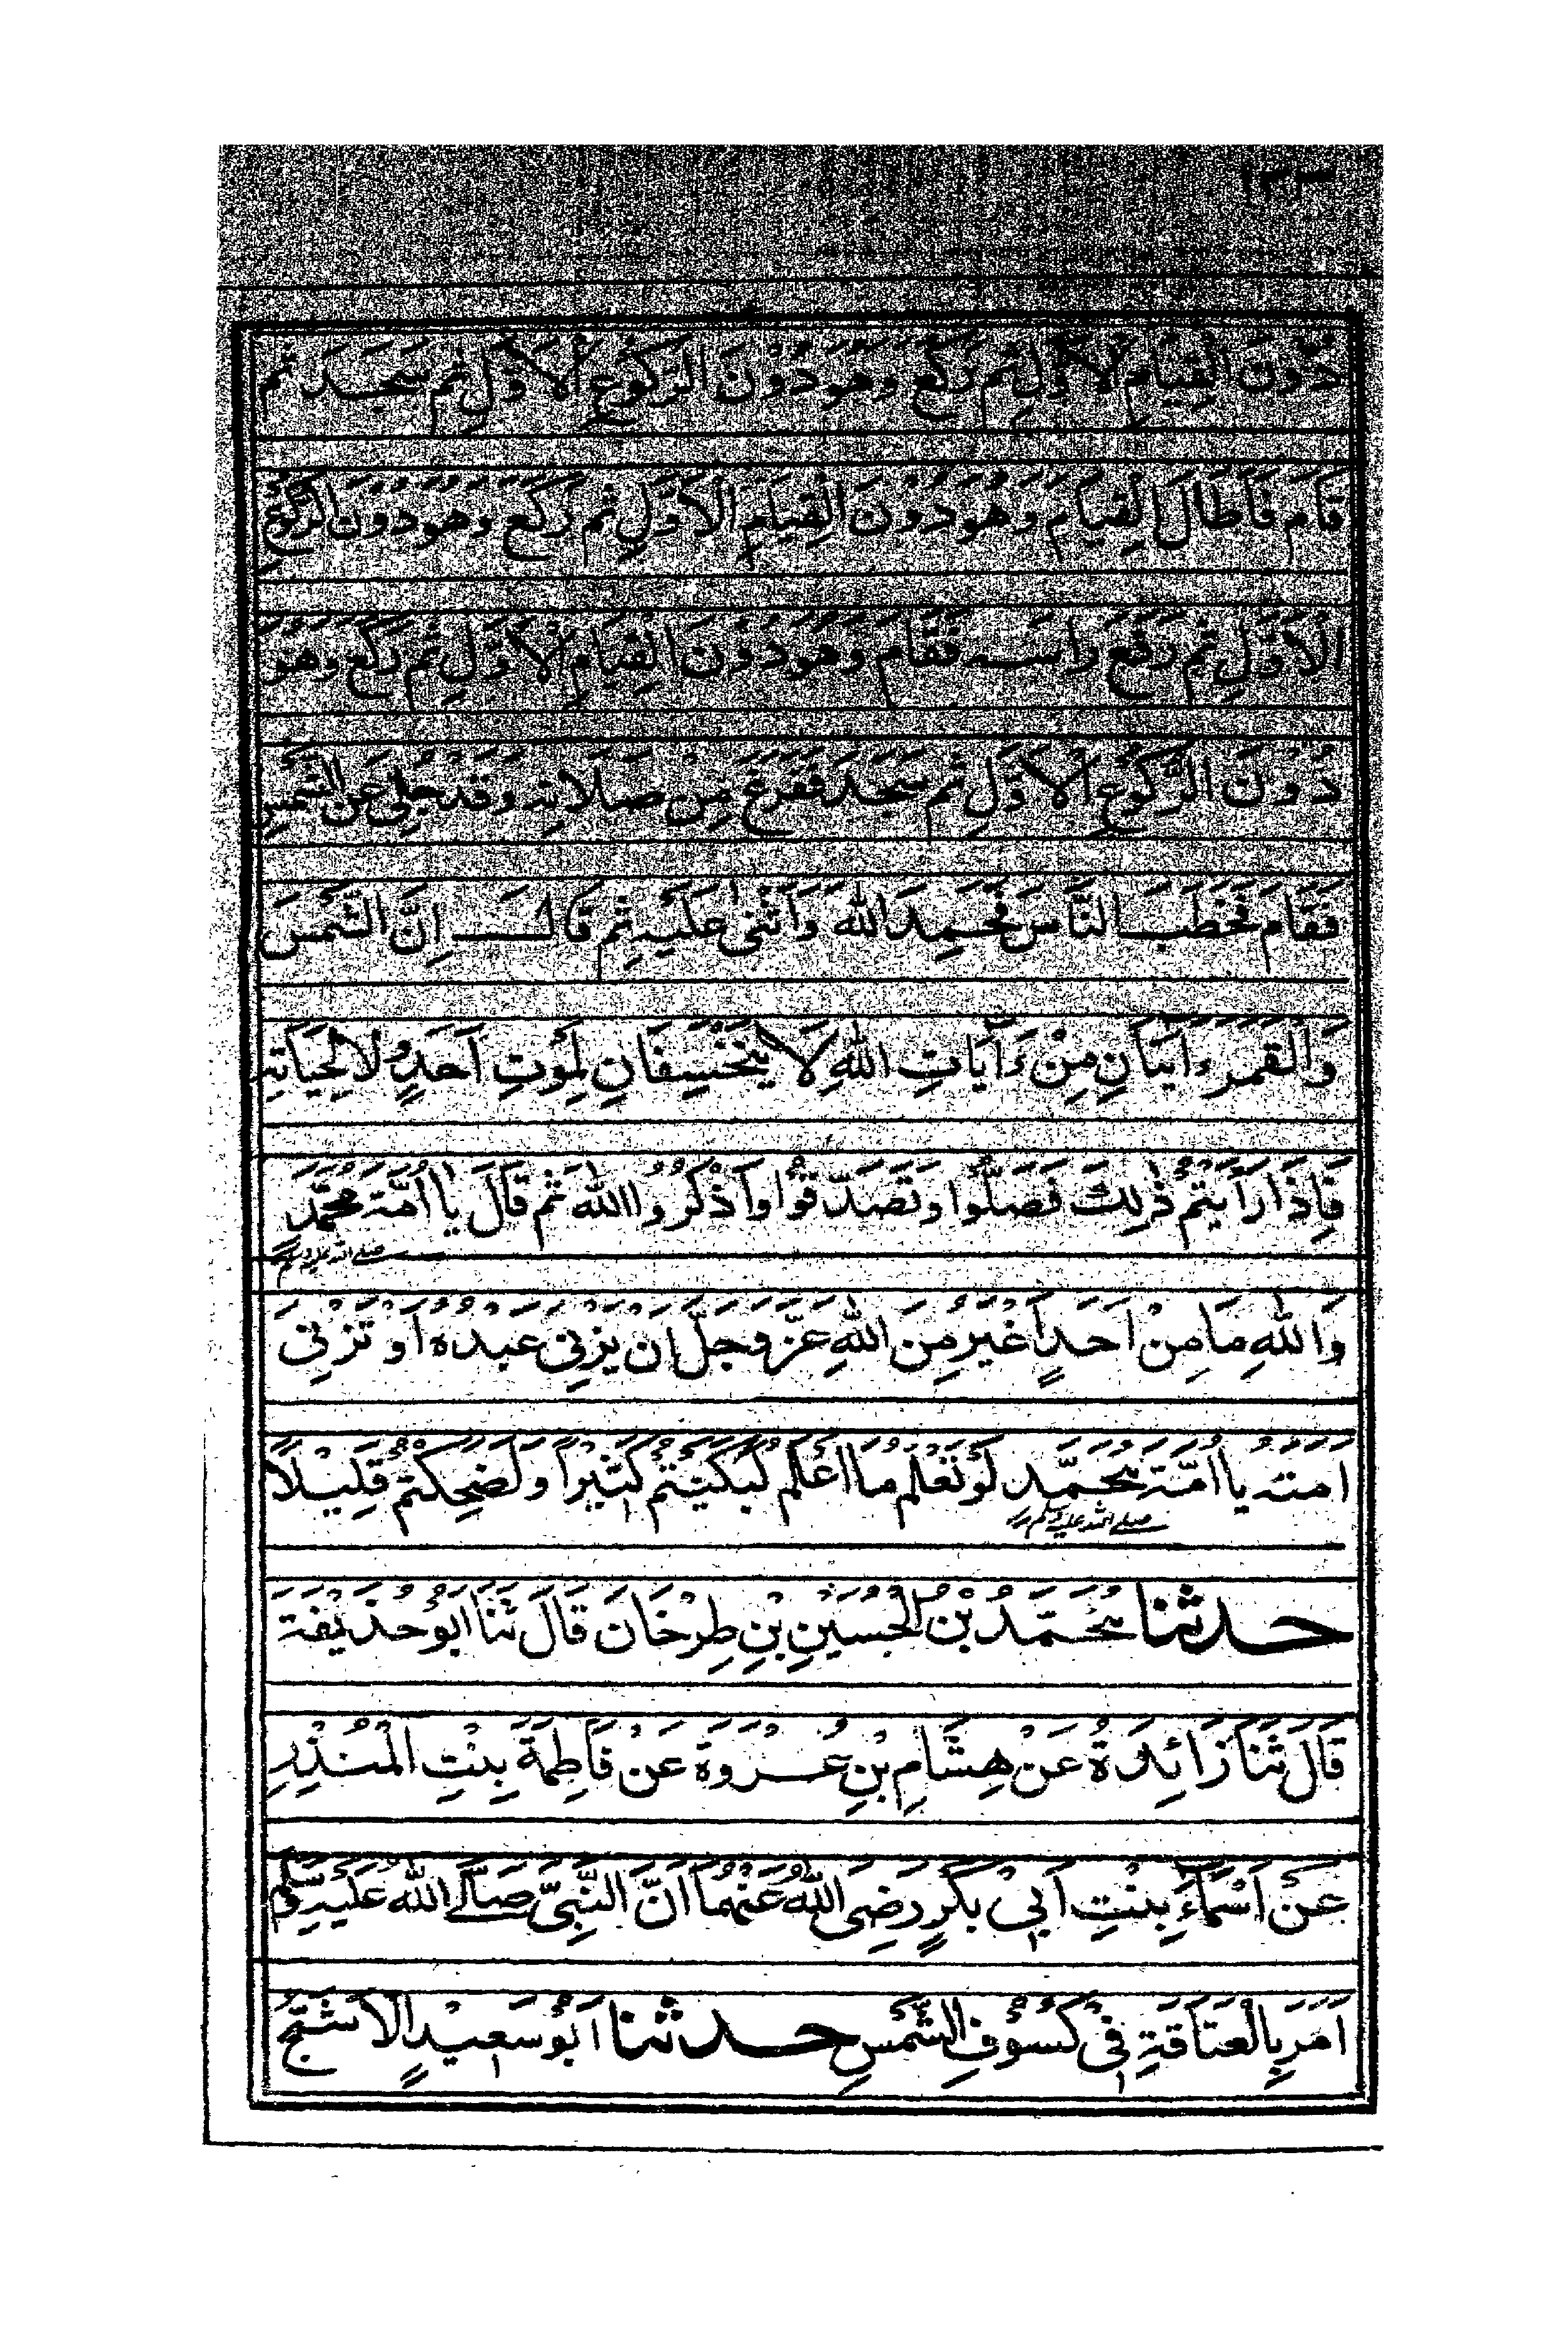 دُونَ القِيَامِ الأَوَّلِ ثُمَّ رَكَعَ وَهُوَ دُونَ الرُّكُوعِ الأَوَّلِ ثُمَّ سَجَدَ ثُمَّ
قَامَ فَأَطَالَ القِيَامَ وَهُوَ دُونَ القِيَامِ الأَوَّلِ ثُمَّ رَكَعَ وَهُوَ دُونَ الرُّكُوعِ
الأَوَّلِ ثُمَّ رَفَعَ رَأسَه فَقَامَ وَهُوَ دُونَ القِيَامِ الأَوَّلِ ثُمَّ رَكَعَ وَهُوَ
دُونَ الرُّكُوعِ الأَوَّلِ ثُمَّ سَجَدَ فَفَرَغَ مِنْ صَلَاتِهِ وَقَدْ جُلِيَ عَنِ الشَّمْسِ
فَقَامَ فَخَطَبَ النَّاسَ فَحَمِدَ اللهَ وَأَثْنَى عَلَيْهِ ثُمَّ قَالَ إِنَّ الشَّمْسَ
وَالْقَمَرَ ءَايَتَانِ مِنْ ءَايَاتِ اللهِ لَا يَنْخَسِفَانِ لِمَوْتِ أَحَدٍ وَلَا لِحَيَاتِهِ
فَإِذَا رَأَيْتُمْ ذٰلِكَ فَصَلُّوا وَتَصَدَّقُوا وَاذْكُرُوا اللهَ ثُمَّ قَالَ يَا أُمَّةَ مُحَمَّدٍ
صلى الله عليه وسلم
وَاللهِ مَا مِنْ أَحَدٍ أَغْيَرُ مِنَ اللهِ عَزَّ وَجَلَّ إِنْ يَزْنِي عَبْدُهُ أَوْ تَزْنِي
أَمَتُهُ يَا أُمَّةَ مُحَمَّدٍ لَوْ تَعْلَمُ مَا أَعْلَمُ لَبَكَيْتُمْ كَثِيرًا وَلَضَحِكْتُمْ قَلِيْلًا
صلى الله عليه وسلم
حدثنا مُحَمَّدُ بْنُ الْحُسَيْنِ بْنِ طِرْخَانَ قَالَ ثَنَا أَبُو حُذَيْفَةَ
قَالَ ثَنَا زَائِدَةُ عَنْ هِشَامِ بْنِ عُرْوَةَ عَنْ فَاطِمَةَ بِنْتِ الْمُنْذِرِ
عَنْ أَسْمَاءَ بِنْتِ أَبِيْ بَكْرٍ رَضِيَ اللهُ عَنْهُمَا أَنَّ النَّبِيَّ صَلَّى اللهُ عَلَيْهِ وَسَلَّمَ
أَمَرَ بِالْعَتَاقَةِ فِيْ كُسُوْفِ الشَّمْسِ حدثنا أَبُو سَعِيْدٍ الأَشَجُّ